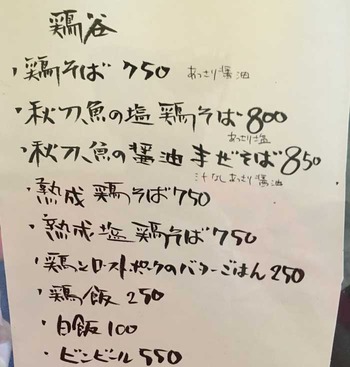 鶏谷
・鶏そば 750 あっさり醤油
・秋刀魚の塩鶏そば 800
あっさり塩
・秋刀魚の醤油まぜそば 850
汁なしあっさり醤油
・熟成鶏そば 750
・熟成塩鶏そば 750
・鶏ンローストポークのバターごはん 250
・鶏飯 250
・白飯 100
・ビンビール 550